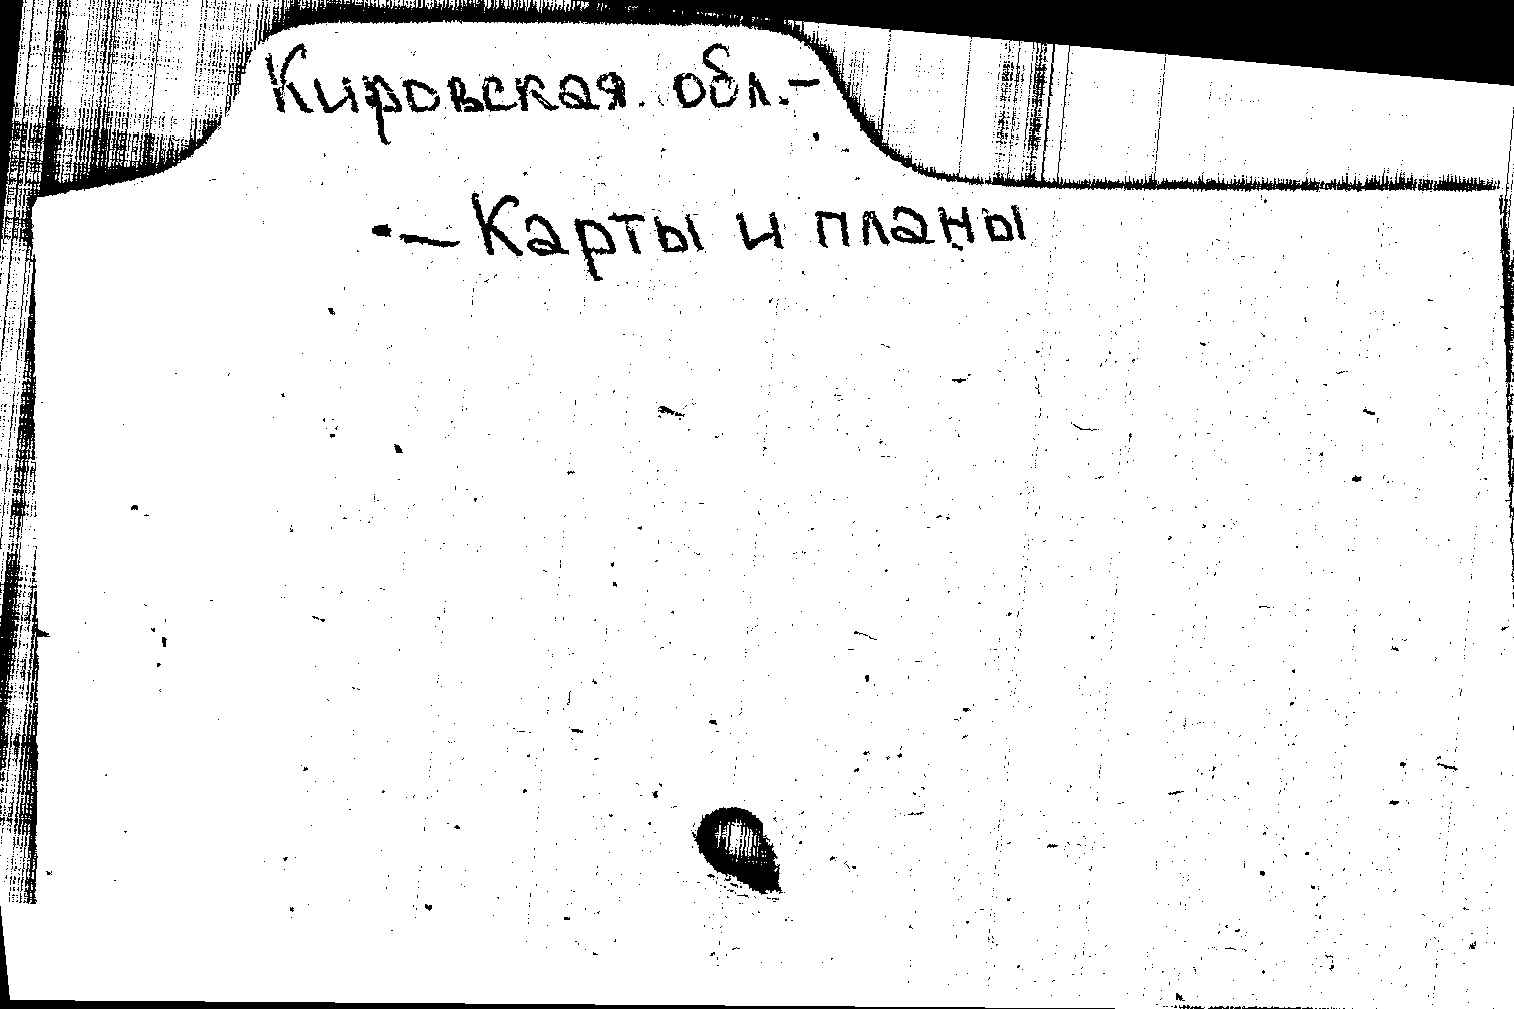 Кировская обл.-
- Карты и планы